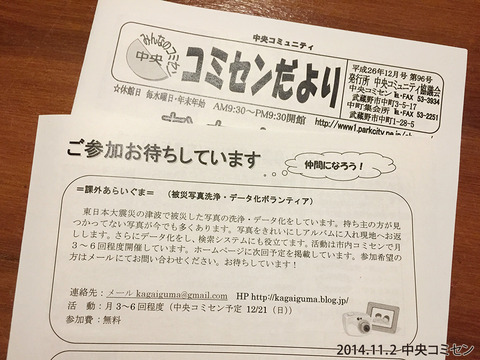 中央コミュニティ
みんなのコミセン
中央
コミセンだより
平成26年12月号 第96号
発行所 中央コミュニティ協議会
中央コミセン TEL・FAX 53-3934
武蔵野市中町3-5-17
中町集会所 TEL・FAX 53-2251
武蔵野市中町1-28-5
☆休館日 毎水曜日・年末年始 AM9:30~PM9:30開館
http://www1.parkcity.ne.jp/
ご参加お待ちしています
仲間になろう!
=課外あらいぐま= (被災写真洗浄・データ化ボランティア)
東日本大震災の津波で被災した写真の洗浄・データ化をしています。持ち主の方が見
つかってない写真が今でも多くあります。写真をきれいにしアルバムに入れ現地へお返
しします。さらにデータ化をし、検索システムにも役立てます。活動は市内コミセンで月
3~6回程度開催しています。ホームページに次回予定を掲載しています。参加希望の
方はメールにてお問い合わせください。お待ちしています!
連絡先:メール kagaiguma@gmail.com HP http://kagaiguma.blog.jp/
活 動:月3~6回程度(中央コミセン予定 12/21(日))
参加費:無料
2014.11.2 中央コミセン